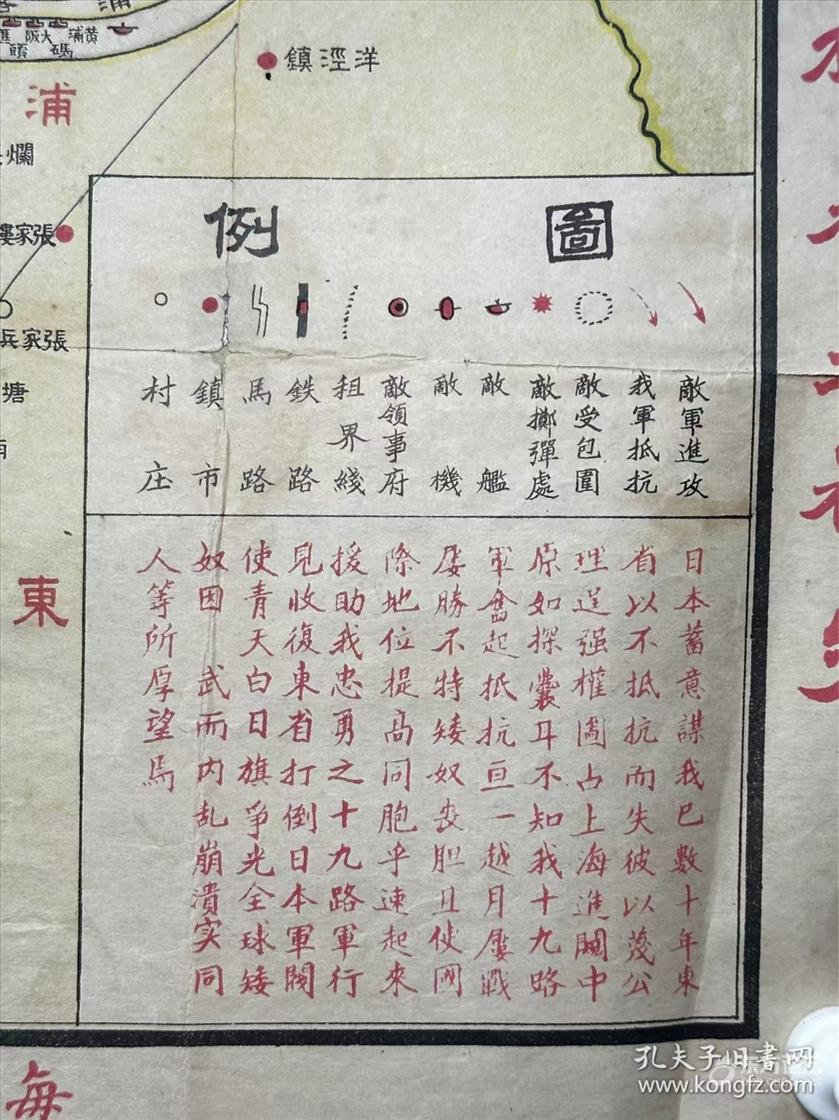 浦
黄浦
大阪
碼
頭
洋涇鎮
浦
爛
張家樓
張家兵
塘
東
圖例
敵軍進攻
我軍抵抗
敵受包圍
敵擲彈處
敵艦
敵機
敵領事府
租界綫
鉄路
馬路
鎮市
村庄
日本蓄意謀我已數十年東
省以不抵抗而失彼以蔑公
理逞强權圖占上海進闚中
原如探囊耳不知我十九路
軍奮起抵抗亘一越月屢戰
屡勝不特矮奴丧胆且使國
際地位提高同胞乎速起來
援助我忠勇之十九路軍行
見收復東省打倒日本軍閥
使青天白日旗爭光全球矮
奴因 武而内乱崩潰实同
人等所厚望焉
每
孔夫子旧书网
www.kongfz.com